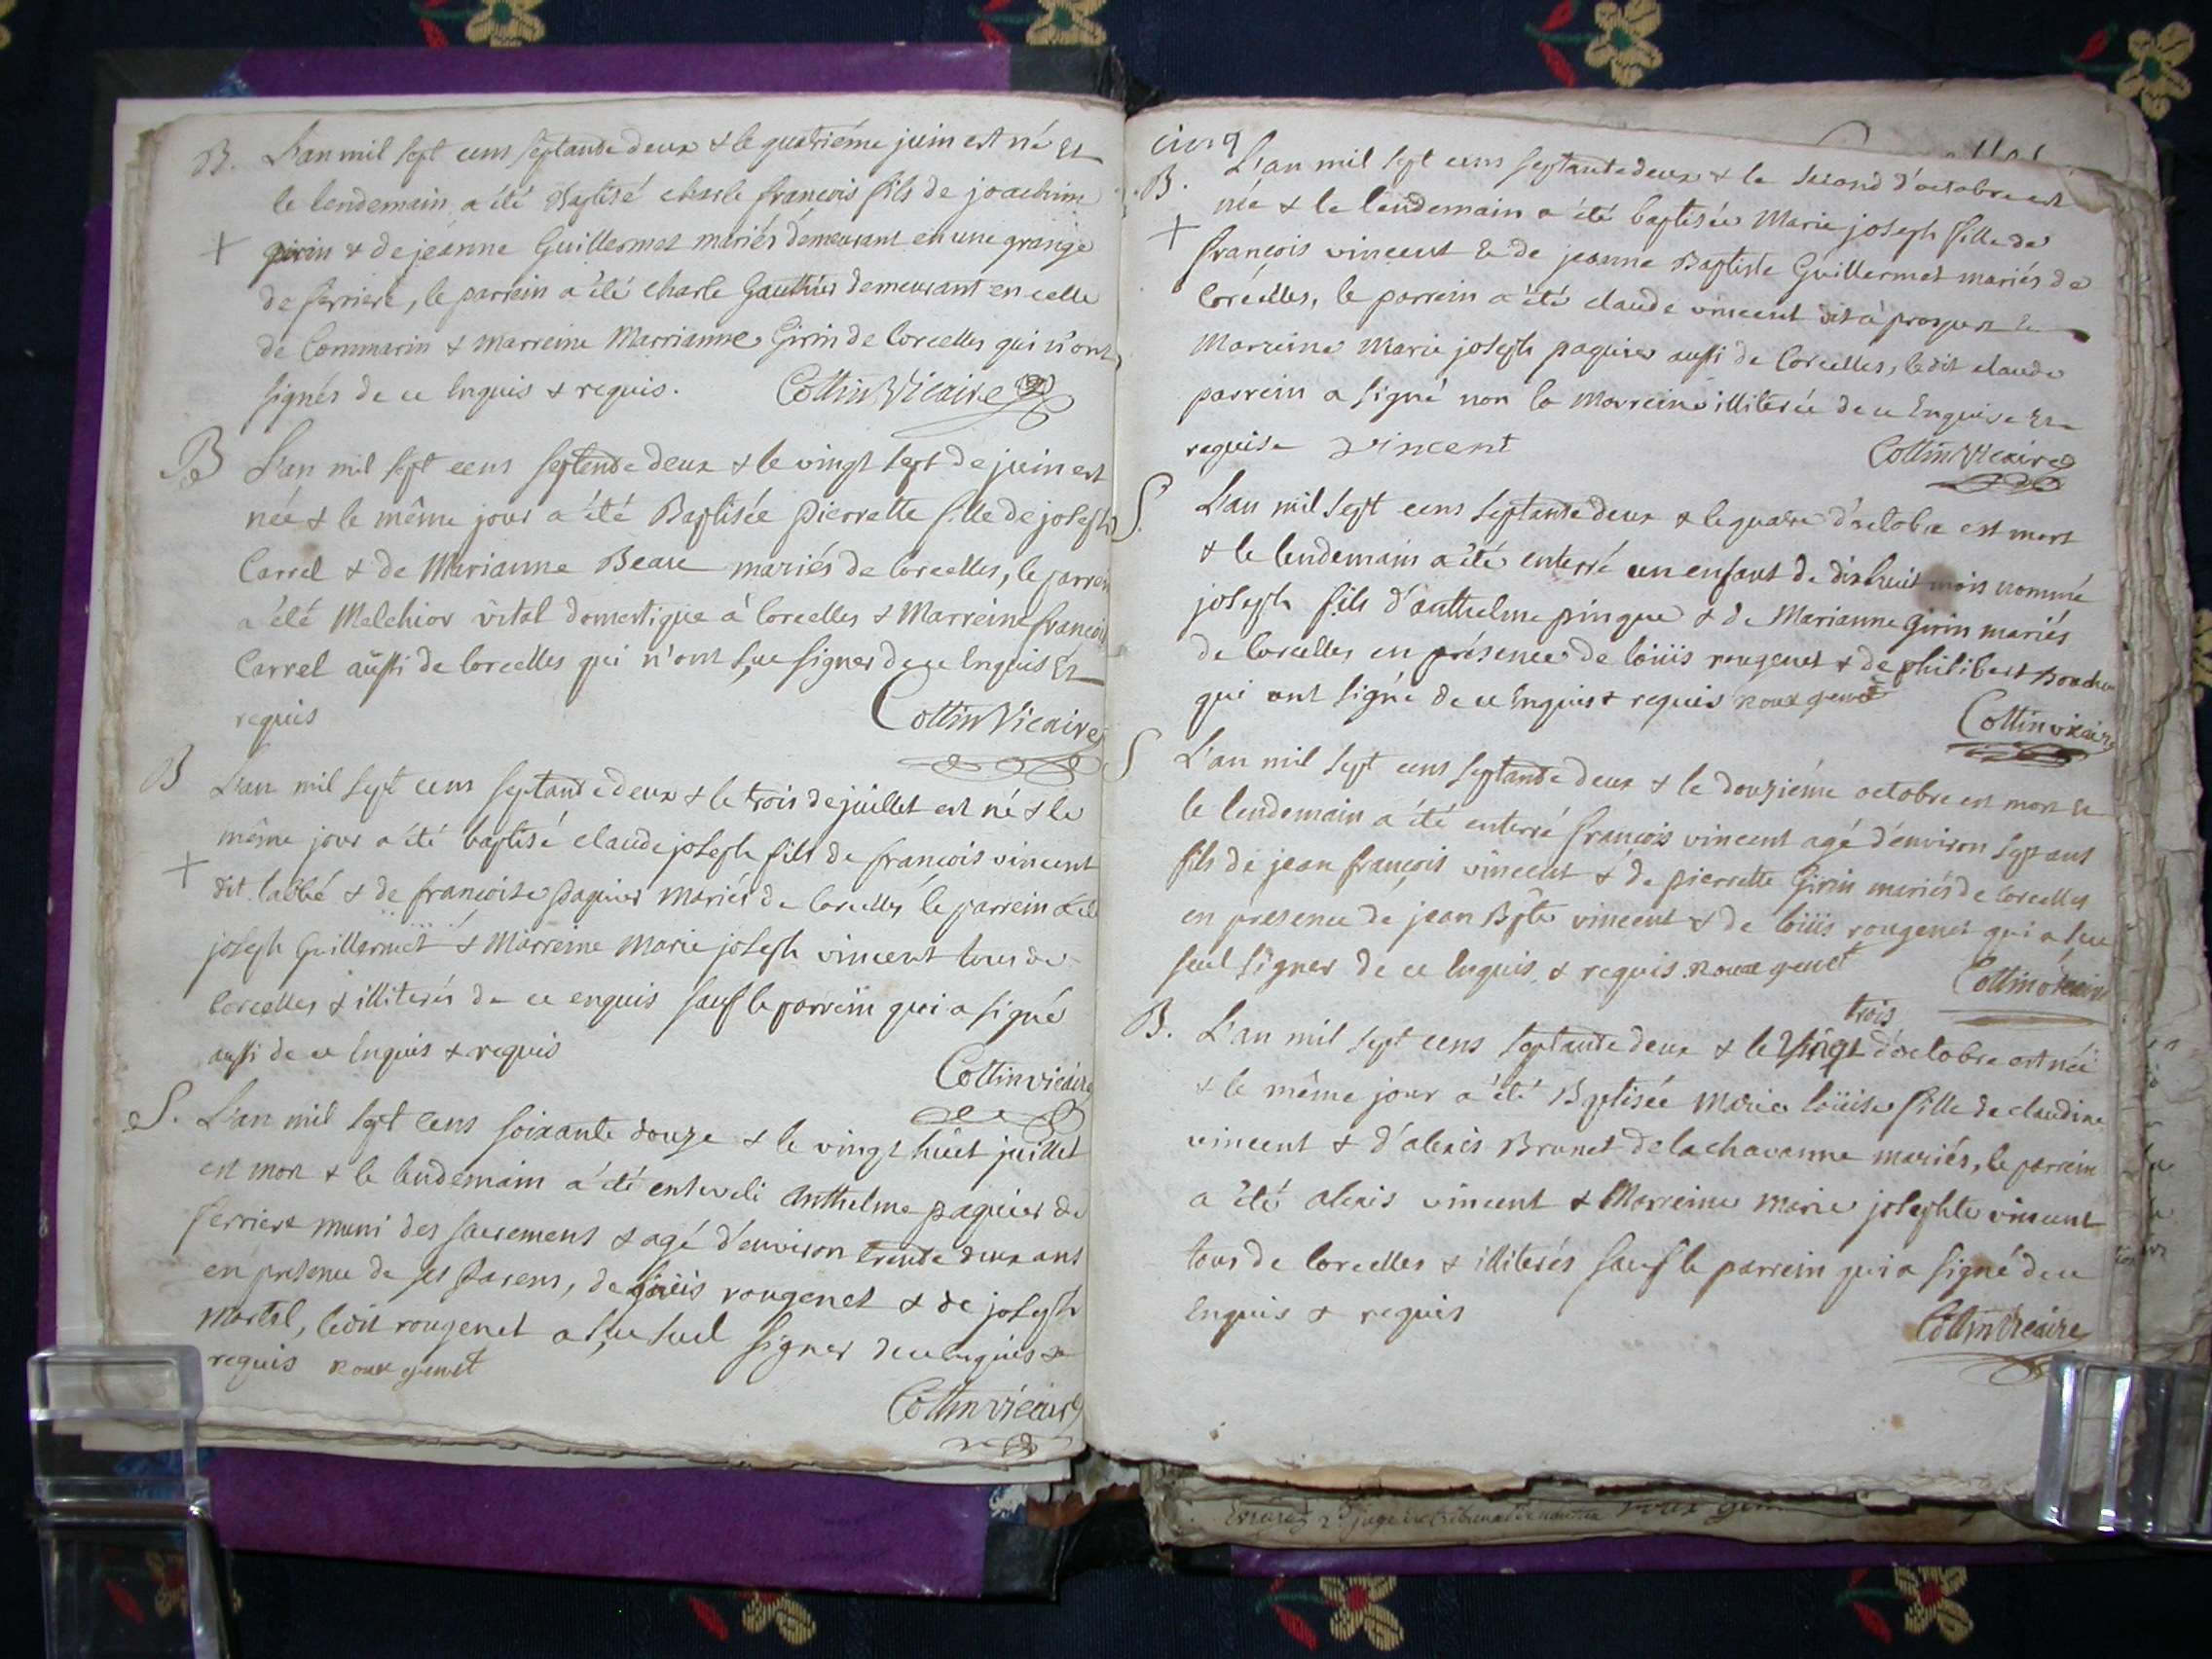 B. L'an mil sept cens septante deux & le quatriéme juin est né Et
le lendemain a été Baptisé charle françois fils de joachim
+ girin & de jeanne Guillermet mariés demeurant en une grange
de ferriere, le parrein a été charle Gauthier demeurant en celle
de Cormarin & marreine Marrianne Girin de Corcelles qui n'ont
signés de ce Enquis & requis. Collin Vicaire
B L'an mil sept cens septente deux & le vingt sept de juin est
née & le même jour a été Baptisée pierrette fille de joseph
Carrel & de Marianne Beau mariés de Corcelles, le parrein
a été Melchior vital domestique à Corcelles & Marreine françois
Carrel aussi de Corcelles qui n'ont sçu signer de ce Enquis Et
requis Collin Vicaire
B L'an mil sept cens septante deux & le trois de juillet est né & le
même jour a été baptisé claude joseph fils de francois vincent
+ dit labbé & de francoise paquier Mariés de Corcelles le parrein a été
joseph Guillermet & Marreine Marie joseph vincent tous de
Corcelles & illiterés de ce enquis sauf le parrein qui a signé
aussi de ce Enquis & requis
Collin vicaire
S. L'an mil sept Cens soixante douze & le vingt huit juillet
est mort & le lendemain a été enseveli Anthelme paquier de
ferriere muni des sacremens & agé d'environ trente deux ans
en presence de ses Parens, de louis rougenet & de joseph
Martel, ledit rougenet a sçu seul signer de ce enquis &
requis Roux genet
Collin vicaire
cinq
B. L'an mil sept cens septante deux & le second d'octobre est
née & le lendemain a été baptisée Marie joseph fille de
+ françois vincent & de jeanne Baptiste Guillermet mariés de
Corcelles, le parrein a été claude vincent dit à prosper &
Marreine Marie joseph paquier aussi de Corcelles, ledit claude
parrein a signé non la Marreine illiterée de ce Enquise Et
requise vincent Collin Vicaire
S. L'an mil sept cens septante deux & le quatre d'octobre est mort
& le lendemain a été enterré un enfant de dixhuit mois nommé
joseph fils d'anthelme pingue & de Marianne girin mariés
de Corcelles en présence de loüis rougenet & de philibert
qui ont signé de ce Enquis & requis Roux genet
Collin vicaire
S L'an mil sept cens septante deux & le douziéme octobre est mort &
le lendemain a été enterré françois vincent agé d'environ sept ans
fils de jean françois vincent & de pierrette Girin mariés de Corcelles
en presence de jean Bpte vincent & de loüis rougenet qui a sçu
seul signer de ce Enquis & requis. Roux genet Collin vicaire
trois
B. L'an mil sept cens septante deux & le Vingt d'octobre est née
& le même jour a été Baptisée Marie loüise fille de claudine
vincent & d'alexis Brunet de la chavanne mariés, le parrein
a été alexis vincent & Marreine Marie josephte vincent
tous de Corcelles & illiterés sauf le parrein qui a signé de ce
Enquis & requis
Collin Vicaire